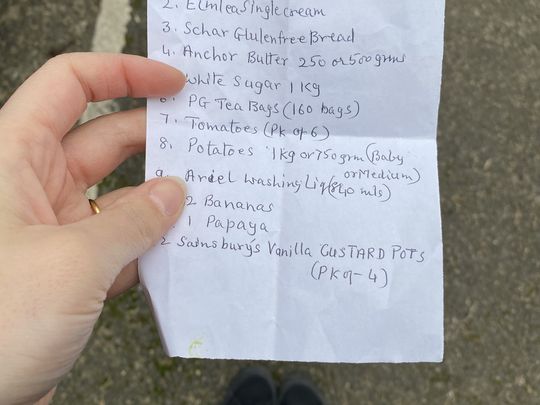 2. Elmlea Single cream
3. Schar Glutenfree Bread
4. Anchor Butter 250 or 500grms
White Sugar 1 Kg
6. PG Tea Bags (160 bags)
7. Tomatoes (Pk of 6)
8. Potatoes 1kg or 750grm (Baby or Medium)
9. Ariel Washing Liq (840 mls)
2 Bananas
1 Papaya
2 Sainsbury's Vanilla CUSTARD POTS
(PK of - 4)